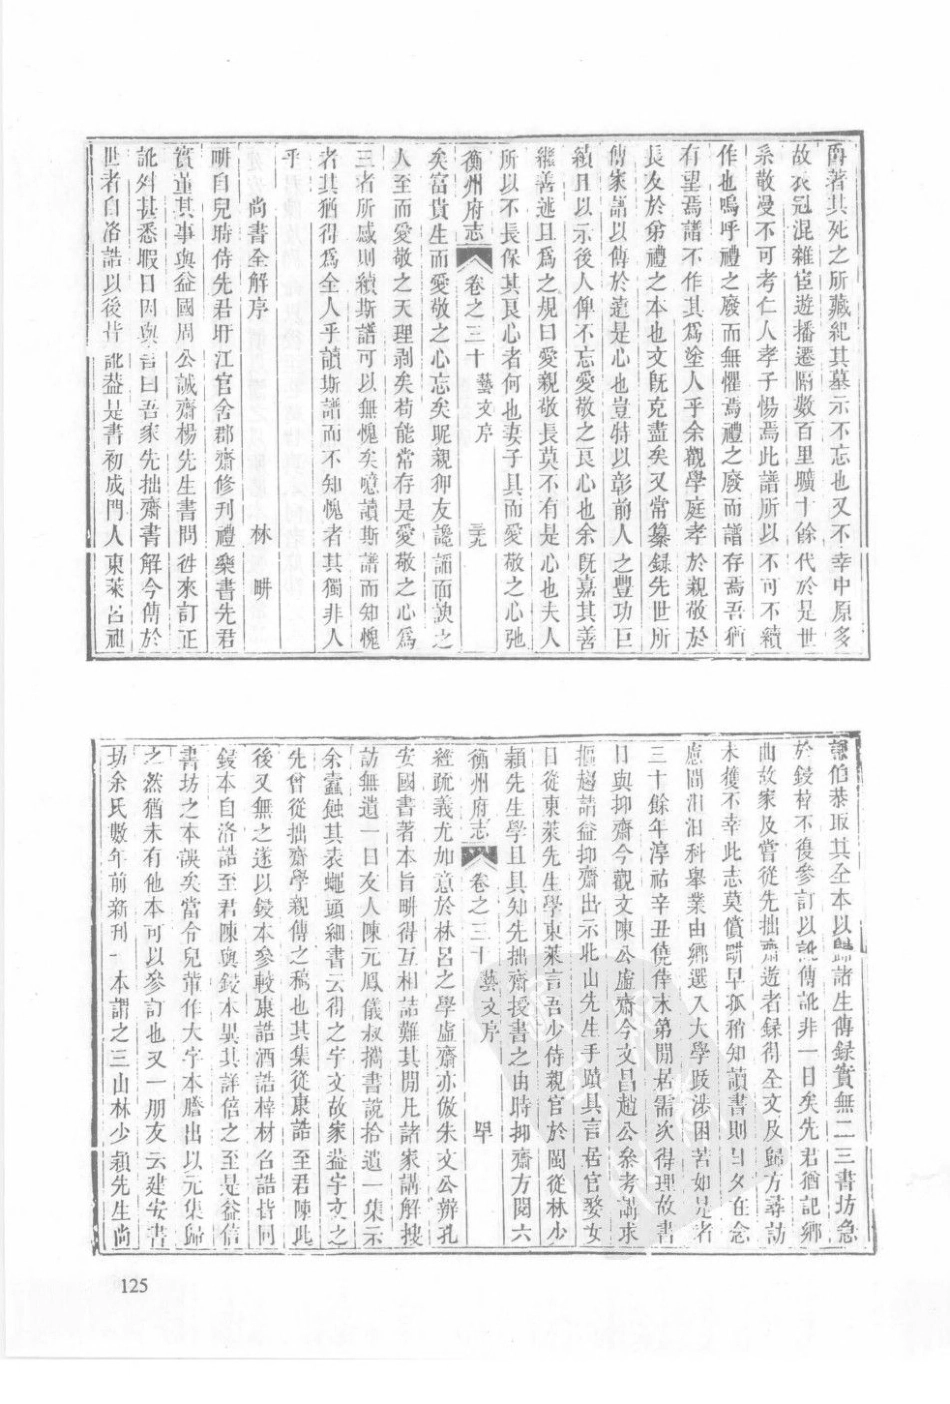 爵著其死之所藏紀其墓示不忘也又不幸中原多
故衣冠混雜宦遊播遷隔數百里曠十餘代於是世
系散漫不可考仁人孝子惕焉此譜所以不可不續
作也嗚呼禮之廢而無懼焉禮之廢而譜存焉吾猶
有望焉譜不作其爲塗人乎余觀學庭孝於親敬於
長友於弟禮之本也文旣克盡矣又常纂錄先世所
傳家譜以傳於遠是心也豈特以彰前人之豐功巨
績且以示後人俾不忘愛敬之良心也余旣嘉其善
繼善述且爲之規曰愛親敬長莫不有是心也夫人
所以不長保其良心者何也妻子具而愛敬之心弛
衡州府志 卷之三十 藝文序 三九
矣富貴生而愛敬之心忘矣昵親狎友讒謟面諛之
人至而愛敬之天理剥矣苟能常存是愛敬之心爲
三者所惑則續斯譜可以無愧矣噫讀斯譜而知愧
者其猶得爲全人乎讀斯譜而不知愧者其獨非人
乎
尚書全解序 林 畊
畊自兒時侍先君盱江官舍郡齋修刊禮樂書先君
實董其事與益國周公誠齋楊先生書問往來訂正
訛舛甚悉暇日因與言曰吾家先拙齋書解今傳於
世者自洛誥以後皆訛葢是書初成門人東萊呂祖
謙伯恭取其全本以歸諸生傳録實無二三書坊急
於鋟梓不復參訂以訛傳訛非一日矣先君猶記鄉
曲故家及嘗從先拙齋遊者録得全文及歸方尋訪
未獲不幸此志莫償畊早孤稍知讀書則日夕在念
慮間汩汩科舉業由鄉選入大學跋涉困苦如是者
三十餘年淳祐辛丑僥倖末第閒居需次得理故書
日與抑齋今觀文陳公虛齋今文昌趙公參考講求
摳趨請益抑齋出示北山先生手蹟具言居官婺女
日從東萊先生學東萊言吾少侍親官於閩從林少
穎先生學且具知先拙齋授書之由時抑齋方閲六
衡州府志 卷之三十 藝文序 四十
經疏義尤加意於林呂之學虛齋亦倣朱文公辨孔
安國書著本旨畊得互相詰難其間凡諸家講解搜
訪無遺一日友人陳元鳳儀叔攜書說拾遺一集示
余蠹蝕其表蠅頭細書云得之宇文故家葢宇文之
先曾從拙齋學親傳之稿也其集從康誥至君陳此
後又無之遂以鋟本參較康誥酒誥梓材召誥皆同
鋟本自洛誥至君陳與鋟本異其詳倍之至是益信
書坊之本誤矣當令兒輩作大字本謄出以元集歸
之然猶未有他本可以參訂也又一朋友云建安書
坊余氏數年前新刊一本謂之三山林少穎先生尚
125